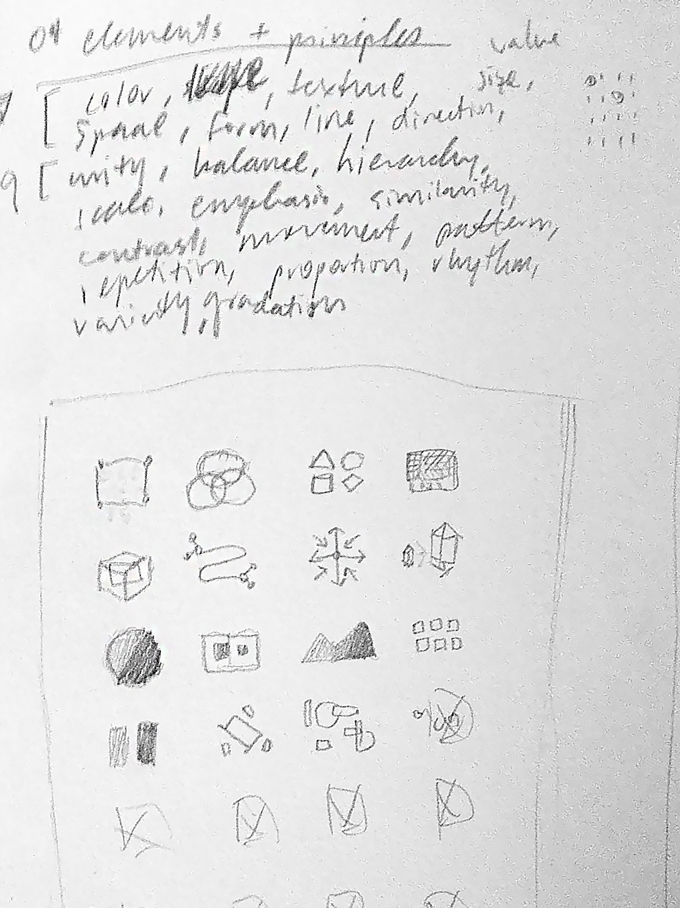 04 elements + principles
value
color, texture, size,
Space, form, line, direction,
9 [ unity, balance, hierarchy,
scale, emphasis, similarity,
contrast, movement, pattern,
repetition, proportion, rhythm,
variety, gradation